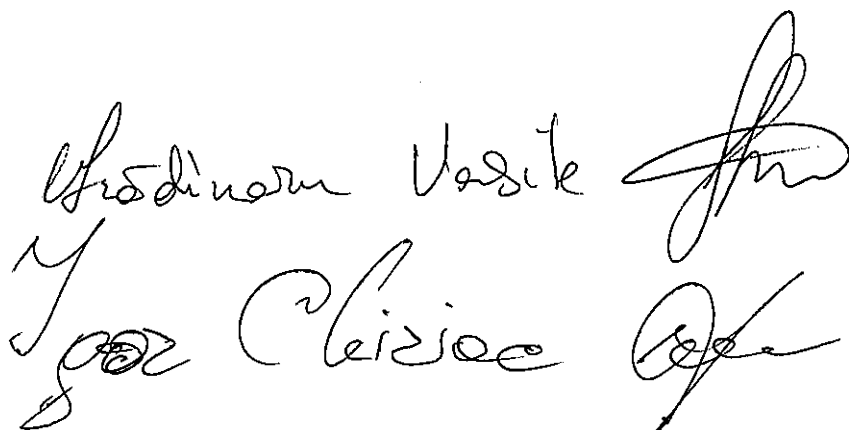 Grădinaru Vasile
Igor Chiriac